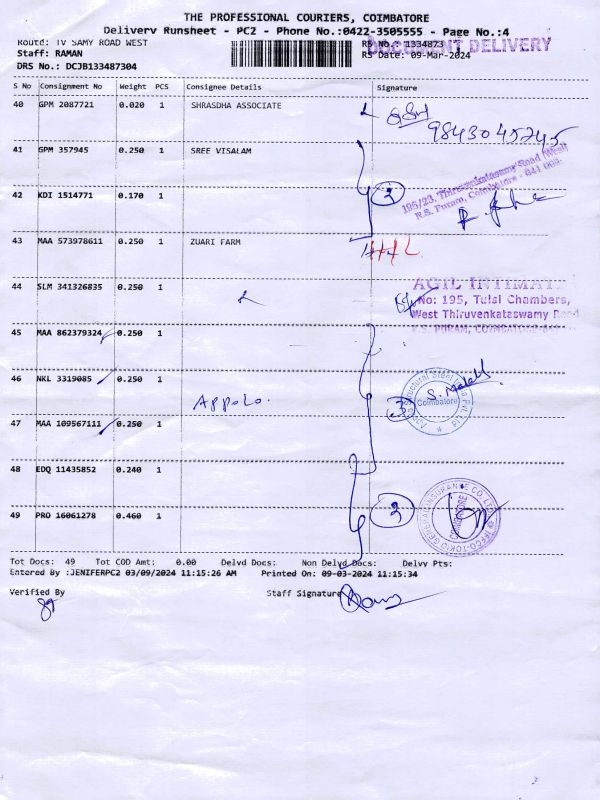 THE PROFESSIONAL COURIERS, COIMBATORE
Delivery Runsheet - PC2 - Phone No.:0422-3505555 - Page No.:4
Routd: TV SAMY ROAD WEST
Staff: RAMAN
DRS No.: DCJB133487304
RS No.: 1334873
DOCUMENT DELIVERY
RS Date: 09-Mar-2024
S No Consignment No Weight PCS Consignee Details Signature
40 GPM 2087721 0.020 1 SHRASDHA ASSOCIATE
9843045245
41 GPM 357945 0.250 1 SREE VISALAM
195/23, Thiruvenkatasamy Road (West)
R.S. Puram, Coimbatore - 641 002.
42 KDI 1514771 0.170 1
2
43 MAA 573978611 0.250 1 ZUARI FARM
44 SLM 341326835 0.250 1
AGIL INTIMATE
No: 195, Tulsi Chambers,
West Thiruvenkataswamy Road
R.S. PURAM, COIMBATORE-641
45 MAA 862379324 0.250 1
46 NKL 3319085 0.250 1 Appolo.
3
Structural Steel
Coimbatore
47 MAA 109567111 0.250 1
48 EDQ 11435852 0.240 1
49 PRO 16061278 0.460 1
2
IFFCO-TOKIO GENERAL INSURANCE CO. LTD.
COIMBATORE
Tot Docs: 49 Tot COD Amt: 0.00 Delvd Docs: Non Delvd Docs: Delvv Pts:
Entered By :JENIFERPC2 03/09/2024 11:15:26 AM Printed On: 09-03-2024 11:15:34
Verified By Staff Signature